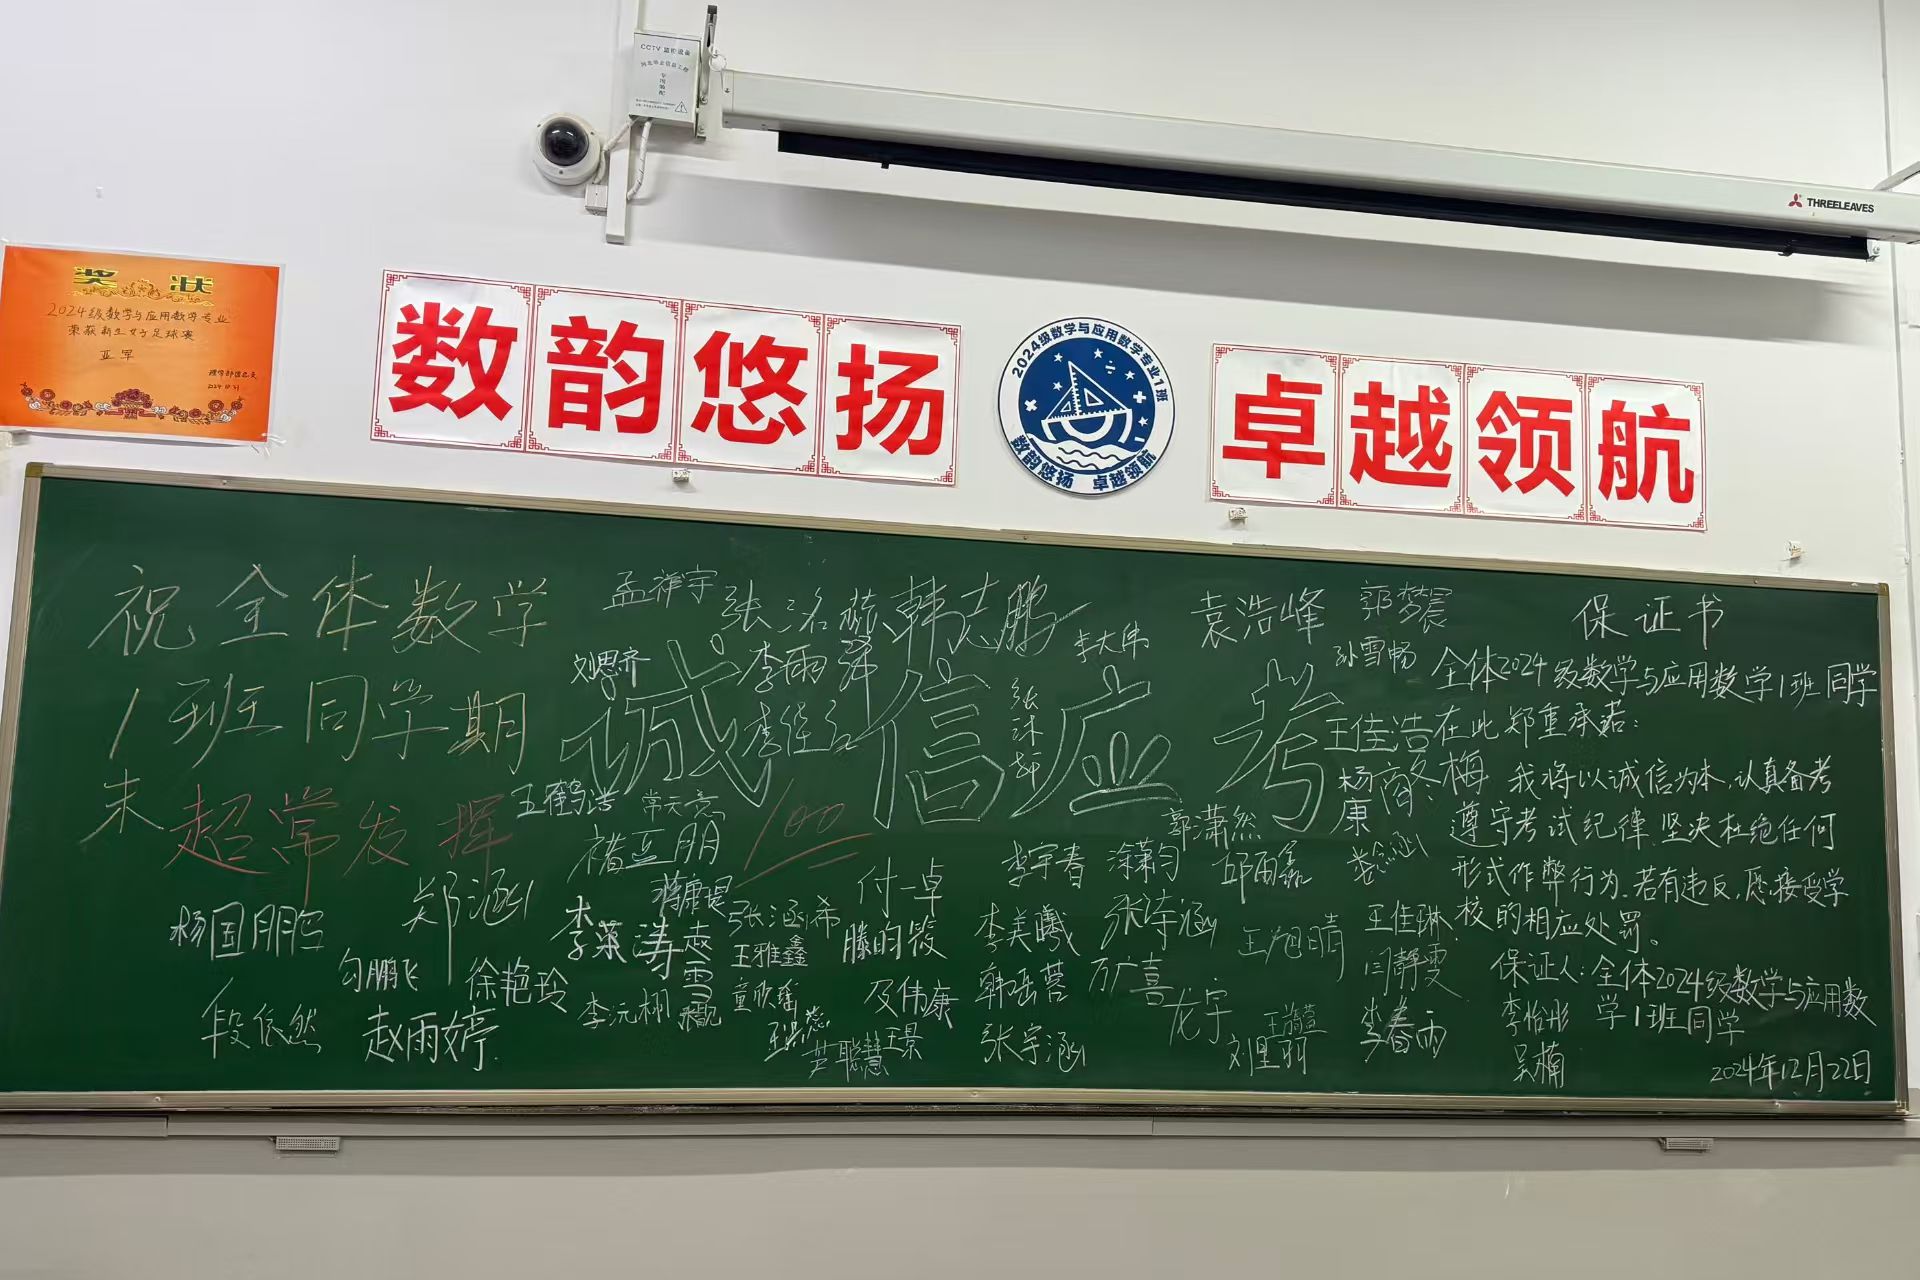 CCTV 监控设备
THREELEAVES
奖状
2024级数学与应用数学专业
荣获新生女子足球赛
亚军
数韵悠扬
2024级数学与应用数学专业1班
数韵悠扬 卓越领航
卓越领航
祝全体数学
1班同学期
末超常发挥
诚信应考
100
孟祥宇
韩志鹏
李大伟
袁浩峰
郭梦晨
孙雪畅
刘思齐
李雨泽
王佳浩
杨康
商冬梅
王鹤洁
常天意
褚亚朋
郭潇然
邱雨鑫
付一卓
李宇春
涂潇匀
郑涵
杨国鹏
张涵希
王雅鑫
滕昀筱
李美曦
张诗涵
王旭晴
王佳琳
闫静雯
勾鹏飞
徐艳玲
李沅栩
赵雪
童欣瑶
及伟康
韩瑶蓉
万广喜
龙宇
段依然
赵雨婷
芦聪慧
王景
张宇涵
刘昱羽
李春雨
李怡彤
吴楠
保证书
全体2024级数学与应用数学1班同学
在此郑重承诺：
我将以诚信为本，认真备考
遵守考试纪律，坚决杜绝任何
形式作弊行为，若有违反，愿接受学
校的相应处罚。
保证人：全体2024级数学与应用数
学1班同学
2024年12月22日